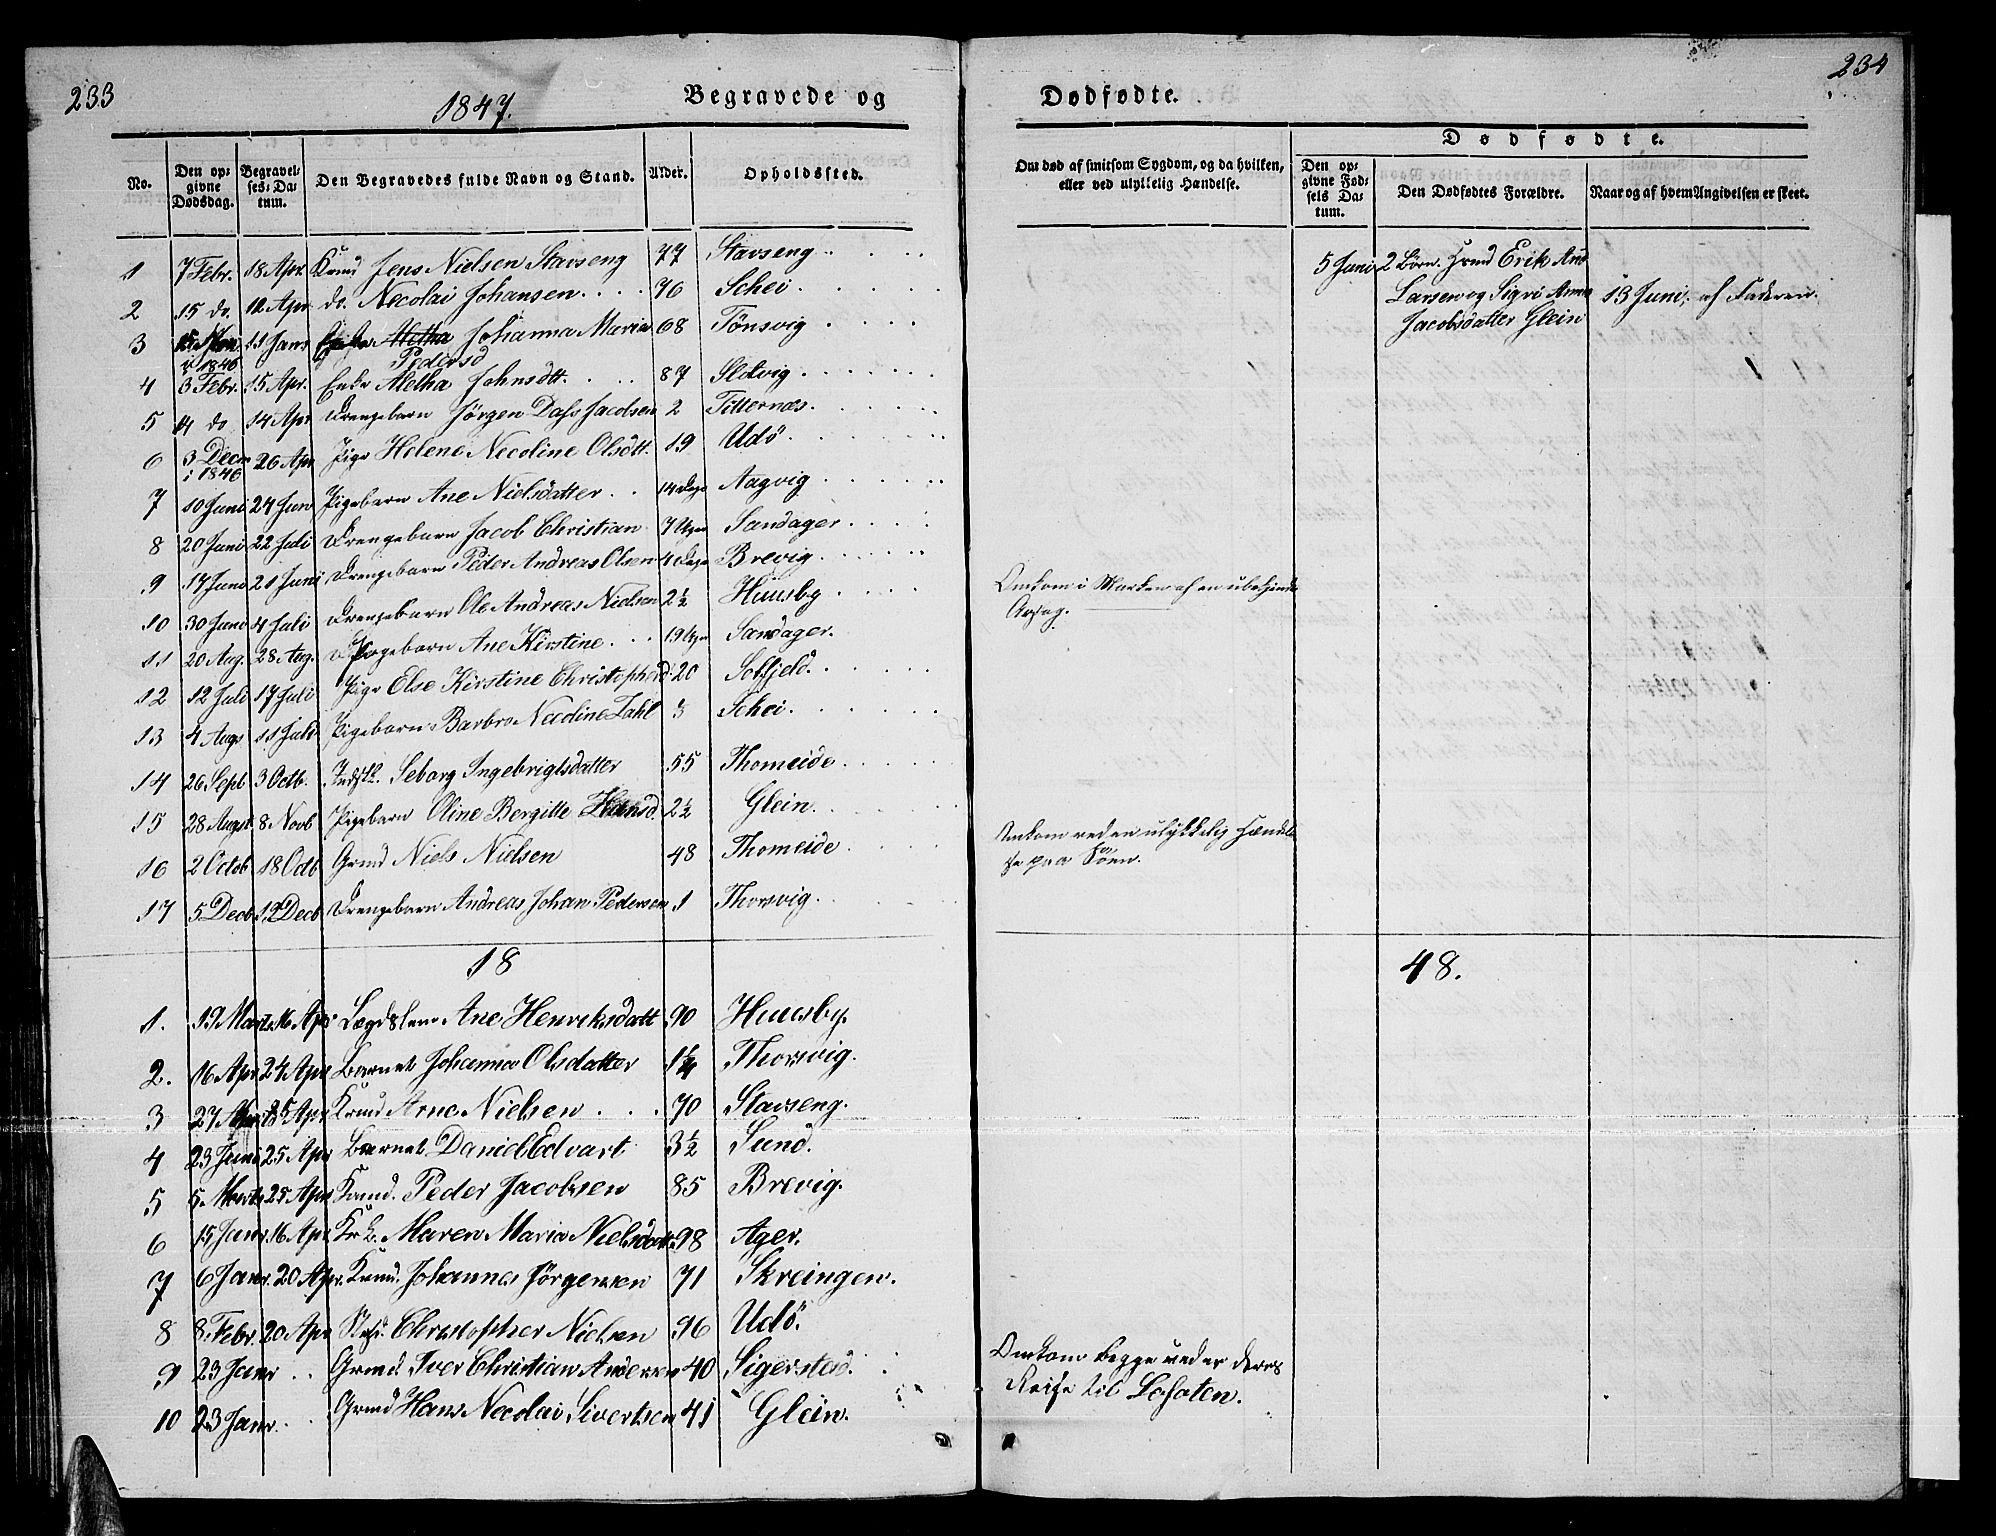 233
1847.
Begravede og
Dødfødte.
234
No.
Den opgivne Dødsdag.
Begravelses-Datum.
Den Begravedes fulde Navn og Stand.
Alder.
Opholdssted.
Om død af smitsom Sygdom, og da hvilken, eller ved ulykkelig Hændelse.
Dødfødte.
Den opgivne Fødsels Datum.
Den Dødfødtes Forældre.
Naar og af hvem Angivelsen er skeet.
1 7 Febr. 18 Apr. Krmd Jens Nielsen Stavseng 77 Stavseng
5 Juni 2 Børn. Grmd Erik And
Larsen og Sigri Anna 13 Juni, af Faderen.
Jacobsdatter Glein
2 15 do. 12 Apr. do. Necolai Johansen 76 Schei
3 11 Janr Johanna Maria 68 Tönsvig
i 1846 Pedersd
4 3 Febr. 15 Apr. Enke Metha Johnsdtt. 87 Slotvig
5 4 do 14 Apr Drengebarn Jörgen Dass Jacobsen 2 Titternæs
6 3 Decm 26 Apr Pige Helene Necoline Olsdtt. 19 Udö
i 1846
7 10 Juni 24 Jun Pigebarn Ane Nielsdatter 14 Dage Aagvig
8 20 Juni 22 Juli Drengebarn Jacob Christian 7 Uger Sandager
9 17 Juni 21 Juni Drengebarn Peder Andreas Olsen 4 Dage Brevig
10 30 Juni 4 Juli Drengebarn Ole Andreas Nielsen 2½ Huusby
Omkom i Marken af en ubekjendt
Aarsag.
11 20 Aug. 28 Aug. Pigebarn Ane Kirstine 19 Uger Sandager.
12 12 Juli 17 Juli Pige Else Kirstine Christopherd 20 Solfjeld.
13 4 Augs 11 Juli Pigebarn Barbro Necoline Zahl 3 Schei.
14 26 Sept 3 Octb. Indstk. Seborg Ingebrigtsdatter 55 Thomeide
15 28 Augst 8 Novb Pigebarn Oline Bergitte Hansd. 2½ Glein.
16 2 Octob 18 Octb Grmd Niels Nielsen 48 Thomeide
Omkom ved en ulykkelig Hændel
se paa Söen.
17 5 Decb 12 Decb Drengebarn Andreas Johan Pedersen 1 Thorsvig
18 48.
1. 19 Marts 16 Apr Lægdslem Ane Henriksdatt 90 Huusby.
2. 16 Apr 24 Apr Barnet Johanna Olsdatter 1¼ Thorsvig.
3 27 Marts 25 Apr Krmd Arne Nielsen 70 Stavseng.
4 23 Juni 25 Apr Barnet Daniel Edvart 3½ Sund.
5 5 Marts 25 Apr Krmd. Peder Jacobsen 85 Brevig.
6 15 Janr 16 Apr. Krk. Maren Maria Nielsdatt 98 Ager.
7 6 Janr. 20 Apr. Krmd. Johannes Jörgensen 71 Skreingen.
8 8 Febr. 20 Apr Christopher Nielsen 96 Udö.
9 23 Janr Grmd. Iver Christian Andersen 40 Sigersted.
10 23 Janr. Grmd Hans Necolai Sivertsen 41 Glein.
Omkom begge under deres
Reise til Lofoten.